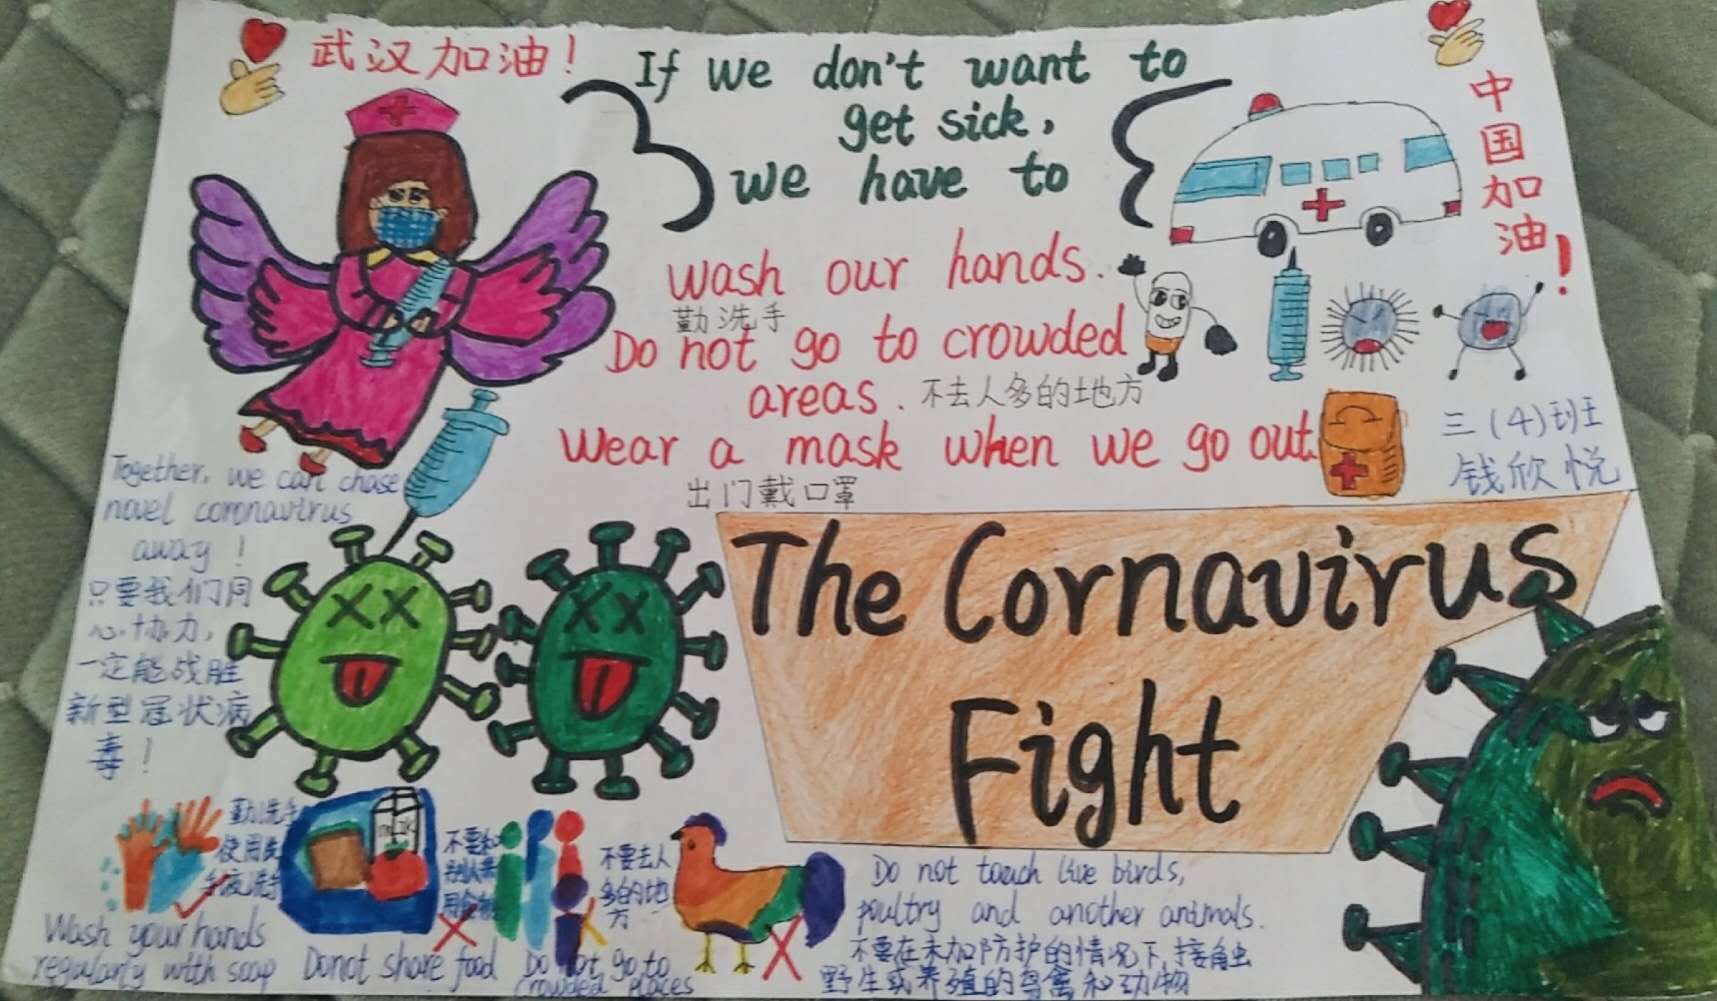 武汉加油！
If we don't want to
get sick,
we have to
中国加油！
wash our hands.
勤洗手
Do not go to crowded
areas. 不去人多的地方
wear a mask when we go out.
出门戴口罩
三(4)班
钱欣悦
Together, we can chase
novel coronavirus
away !
只要我们同
心协力,
一定能战胜
新型冠状病
毒！
The Cornavirus
Fight
勤洗手
使用洗
手液洗手
Wash your hands
regularly with soap
MILK
不要和
别人共
用食物
Donot share food
不要去人
多的地
方
Do not go to
crowded places
Do not touch live birds,
poultry and another animals.
不要在未加防护的情况下,接触
野生或养殖的鸟禽和动物